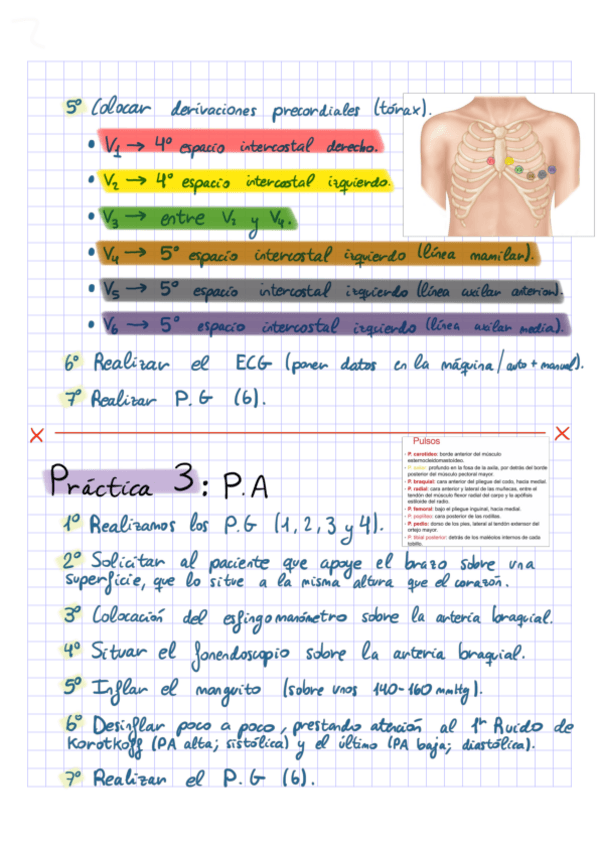 5º Colocar derivaciones precordiales (tórax).
• V1 → 4º espacio intercostal derecho.
• V2 → 4º espacio intercostal izquierdo.
• V3 → entre V2 y V4.
• V4 → 5º espacio intercostal izquierdo (línea mamilar).
• V5 → 5º espacio intercostal izquierdo (línea axilar anterior).
• V6 → 5º espacio intercostal izquierdo (línea axilar media).
6º Realizar el ECG (poner datos en la máquina/auto + manual).
7º Realizar P.G (6).
Pulsos
P. carotídeo: borde anterior del músculo
esternocleidomastoideo.
profundo en la fosa de la axila, por detrás del borde
posterior del músculo pectoral mayor.
P. braquial: cara anterior del pliegue del codo, hacia medial.
P. radial: cara anterior y lateral de las muñecas, entre el
tendón del músculo flexor radial del carpo y la apófisis
estiloide del radio.
P. femoral: bajo el pliegue inguinal, hacia medial.
P. poplíteo: cara posterior de las rodillas.
P. pedio: dorso de los pies, lateral al tendón extensor del
ortejo mayor.
P. tibial posterior: detrás de los maléolos internos de cada
tobillo.
Práctica 3: P.A
1º Realizamos los P.G (1, 2, 3 y 4).
2º Solicitar al paciente que apoye el brazo sobre una
superficie, que lo sitve a la misma altura que el corazón.
3º Colocación del esfingomanómetro sobre la arteria braquial.
4º Situar el fonendoscopio sobre la arteria braquial.
5º Inflar el manguito (sobre unos 140-160 mmHg).
6º Desinflar poco a poco, prestando atención al 1er Ruido de
Korotkoff (PA alta; sistólica) y el último (PA baja; diastólica).
7º Realizar el P.G (6).